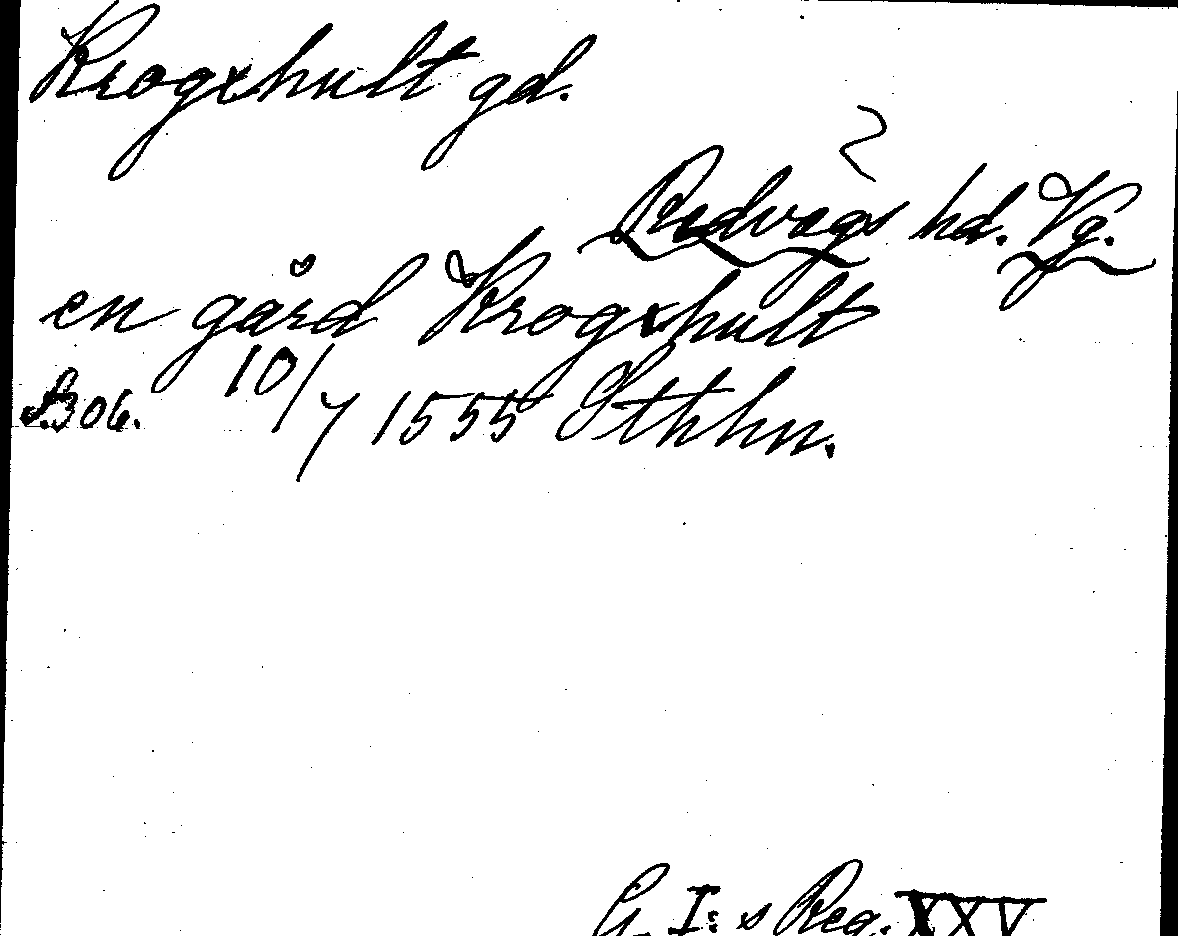 Krogxhult gd.
Redvägs hd. Vg.
en gård Krogxhult
S.306. 10/7 1555 Sthhn.
G. I:s Reg. XXV